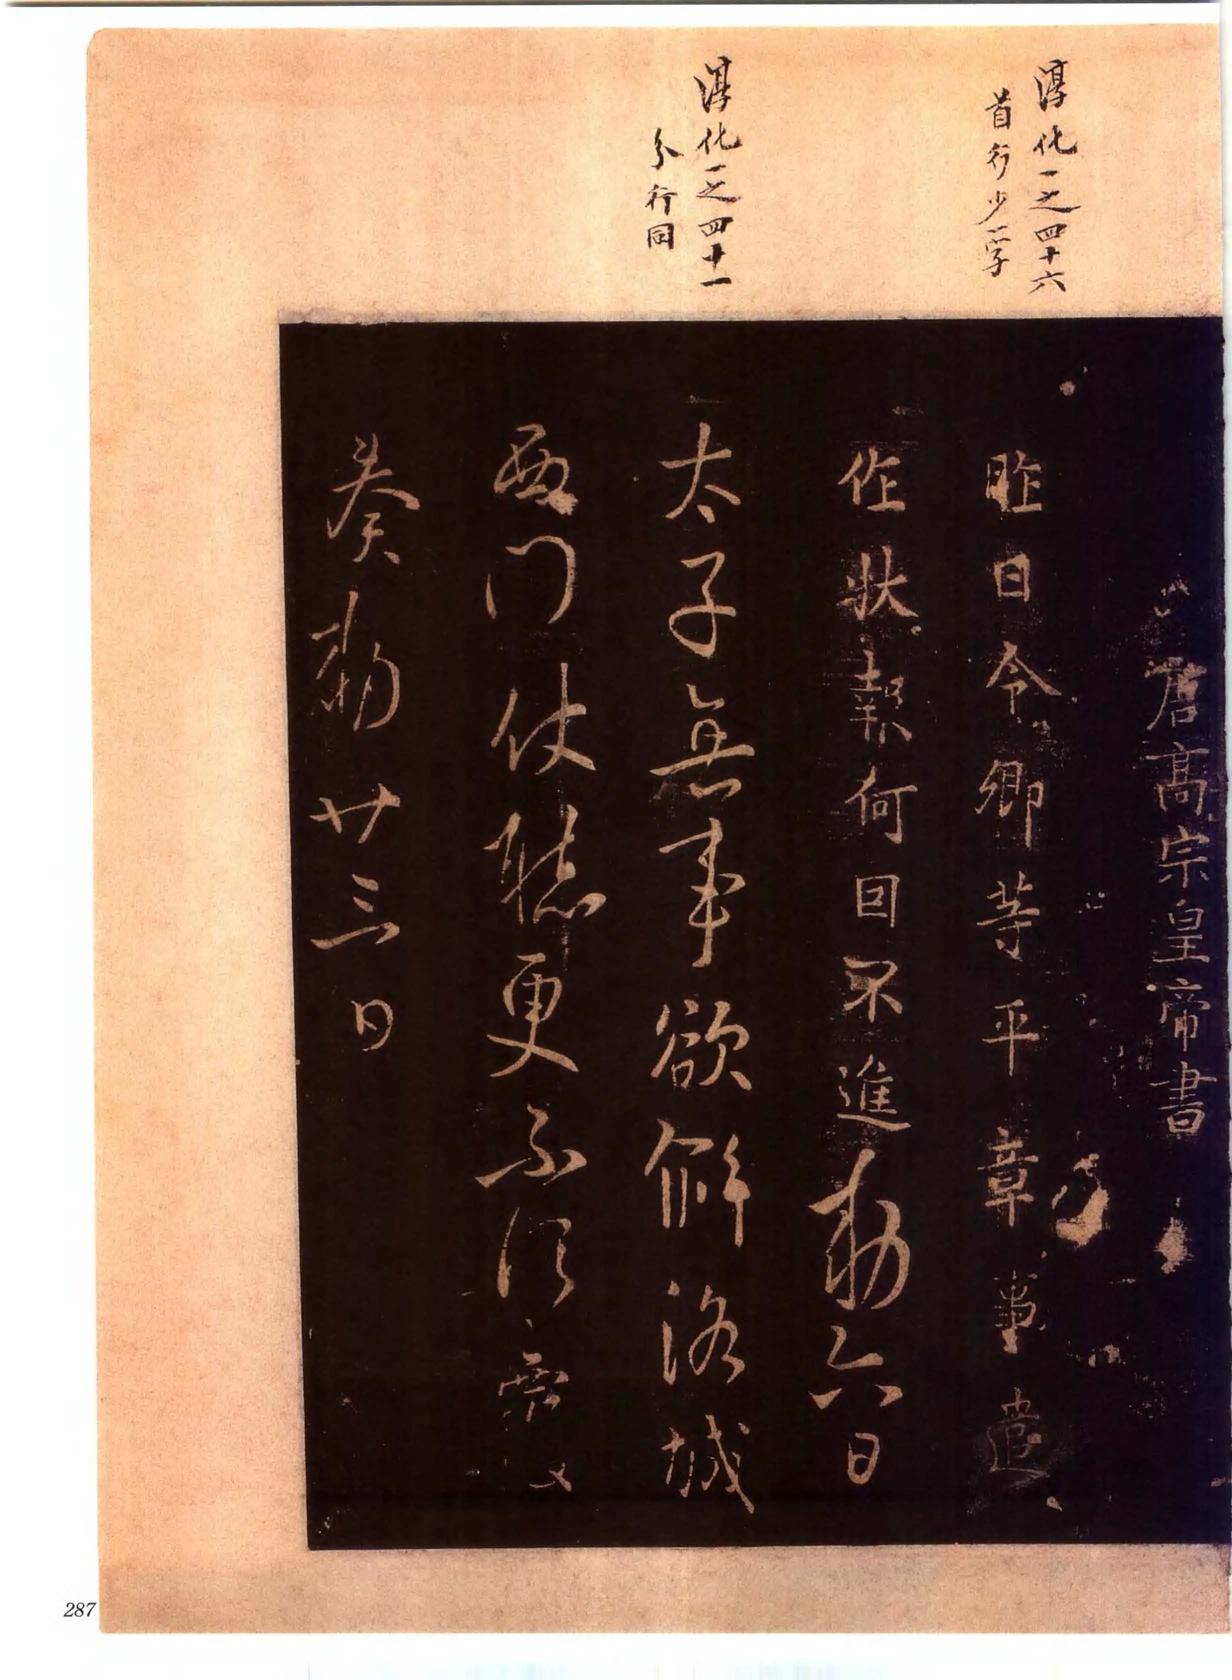 淳化一之四十六
首行少一字
淳化一之四十一
分行同
唐高宗皇帝書
昨日令卿等平章事遣
作狀報何因不進敕六日
太子無事欲解洛城
西門仗聽更不須
奏敕廿三日
287